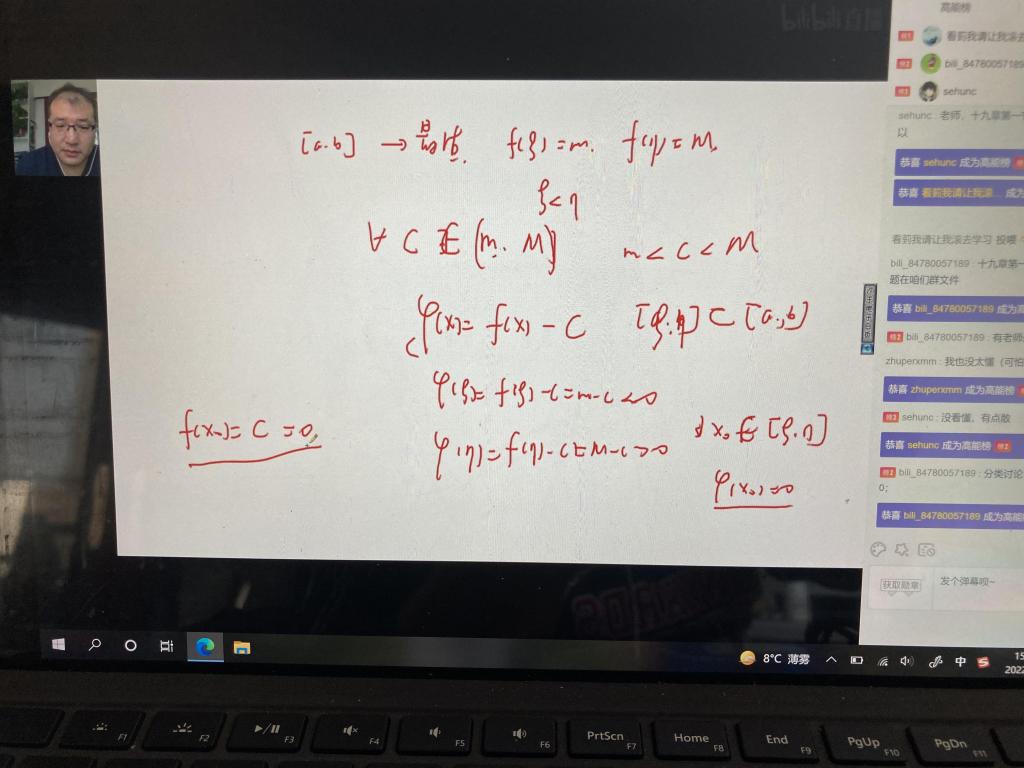 bilibili 直播
高能榜
榜1 看莉我请让我滚去
榜2 bili_84780057189
榜3 sehunc
sehunc : 老师，十九章第一
以
恭喜 sehunc 成为高能榜
恭喜 看莉我请让我滚... 成为
看莉我请让我滚去学习 投喂
bili_84780057189 : 十九章第一
题在咱们群文件
恭喜 bili_84780057189 成为高
榜2 bili_84780057189 : 有老师
zhuperxmm : 我也没太懂（可怕
恭喜 zhuperxmm 成为高能榜
榜3 sehunc : 没看懂，有点散
恭喜 sehunc 成为高能榜
榜2 bili_84780057189 : 分类讨论
0;
恭喜 bili_84780057189 成为高
获取勋章 发个弹幕呗~
[a.b] → 最值. f(ξ)=m. f(η)=M.
ξ<η
∀ C ∈ [m. M] m<C<M
φ(x)= f(x) - C [ξ.η]⊂[a.b]
φ(ξ)= f(ξ)-C=m-C<0
f(x₀)= C =0
φ(η)=f(η)-C=M-C>0 ∃ x₀∈[ξ.η]
φ(x₀)=0
8°C 薄雾 中 S 15
2022
F1 F2 F3 F4 F5 F6 PrtScn F7 Home F8 End F9 PgUp F10 PgDn F11